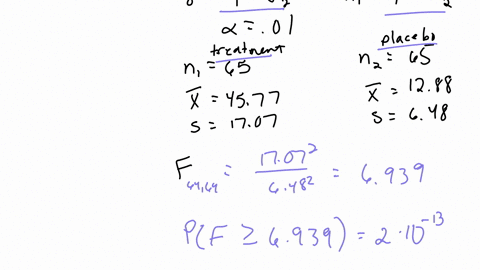 α = .01
treatment
n₁ = 65
x̄ = 45.77
s = 17.07
placebo
n₂ = 65
x̄ = 12.88
s = 6.48
F₆₄,₆₄ = 17.07² / 6.48² = 6.939
P(F ≥ 6.939) = 2·10⁻¹³